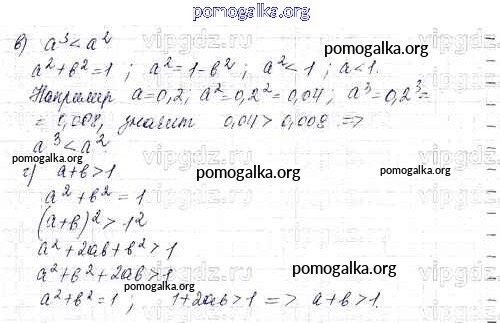 pomogalka.org
в) a³ < a²
pomogalka.org
a² + b² = 1 ; a² = 1 - b² ; a² < 1 ; a < 1.
Например a = 0,2; a² = 0,2² = 0,04 ; a³ = 0,2³ =
= 0,008, значит 0,04 > 0,008 =>
a³ < a².
pomogalka.org
г) a + b > 1
pomogalka.org
a² + b² = 1
(a + b)² > 1²
a² + 2ab + b² > 1
a² + b² + 2ab > 1
pomogalka.org
a² + b² = 1 ; 1 + 2ab > 1 => a + b > 1.
pomogalka.org